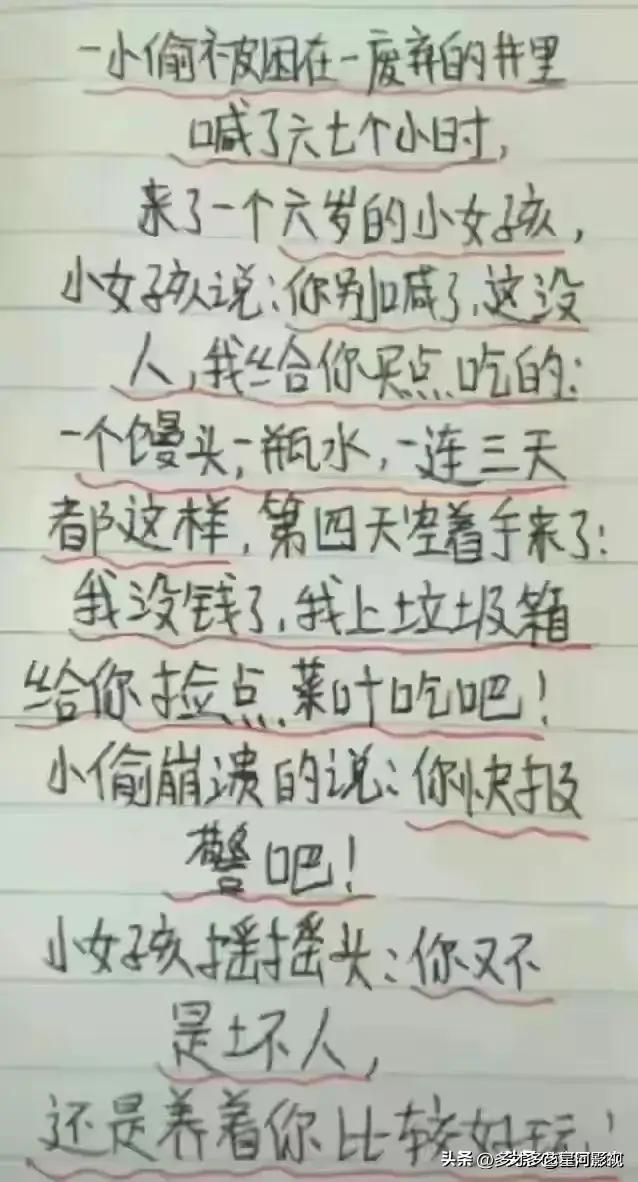 一小偷被困在一废弃的井里
喊了六七个小时,
来了一个六岁的小女孩,
小女孩说:你别喊了,这没
人,我给你买点吃的:
一个馒头,一瓶水,一连三天
都这样,第四天空着手来了:
我没钱了,我上垃圾箱
给你捡点菜叶吃吧!
小偷崩溃的说:你快报
警吧!
小女孩摇摇头:你又不
是坏人,
还是养着你比较好玩!
头条 @
星河影视